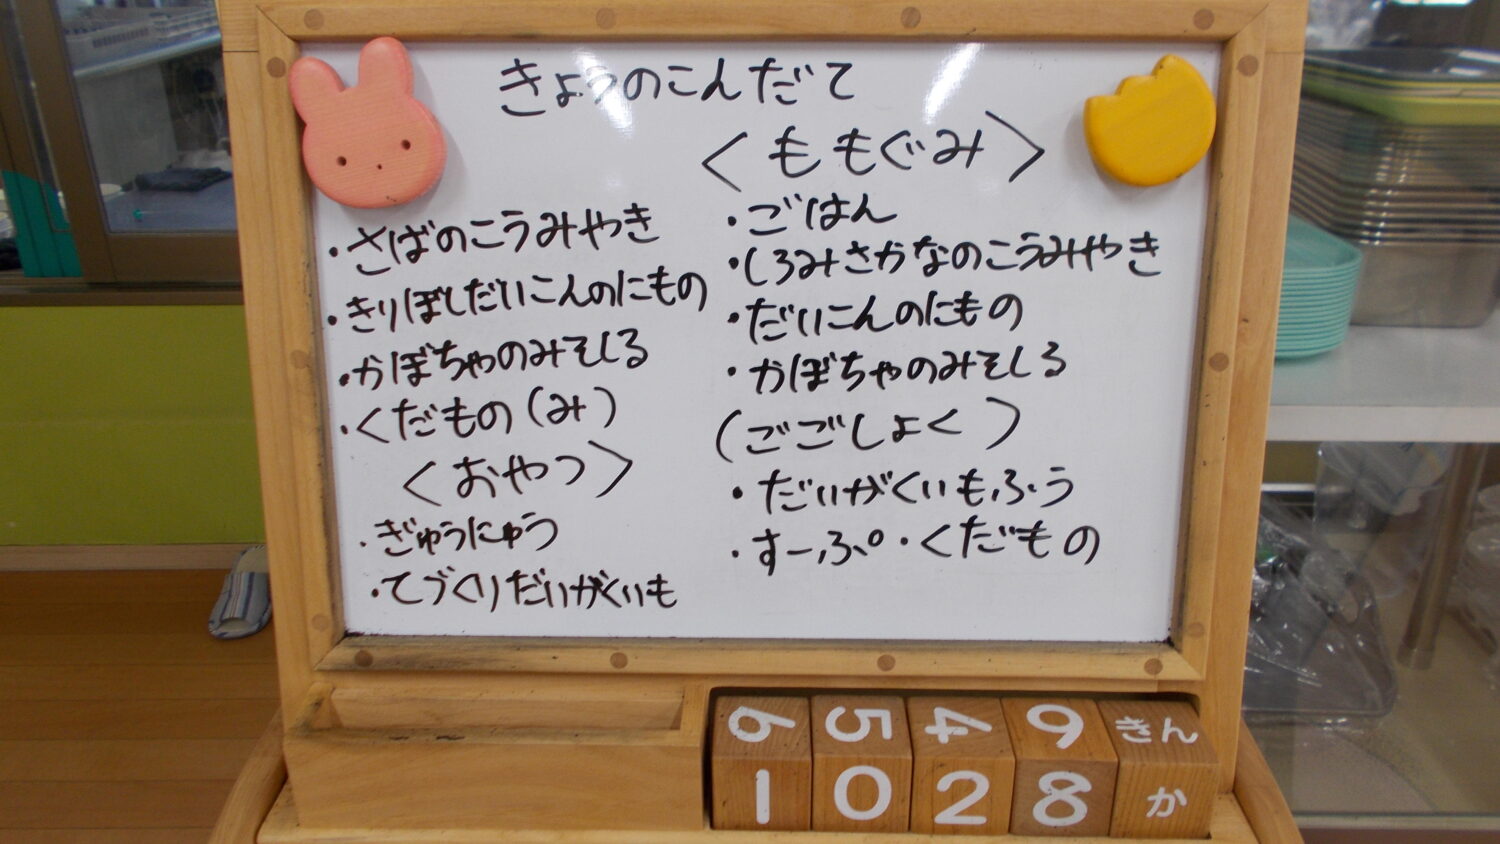 きょうのこんだて
・さばのこうみやき
・きりぼしだいこんのにもの
・かぼちゃのみそしる
・くだもの(み)
<おやつ>
・ぎゅうにゅう
・てづくりだいがくいも
<ももぐみ>
・ごはん
・しろみさかなのこうみやき
・だいこんのにもの
・かぼちゃのみそしる
(ごごしょく)
・だいがくいもふう
・すーぷ・くだもの
6 5 4 9 きん
1 0 2 8 か